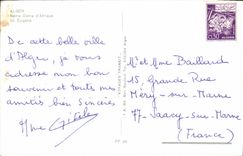 ALGER
Notre Dame d'Afrique
St. Eugène
De cette belle ville
d'Alger, je vous
adresse mon bon
souvenir et toutes mes
amitiés bien sincères.
Mme
0,30
Mr et Mme Baillard
15, Grande Rue
Méry-sur-Marne
77-Saacy-sur-Marne
(France)